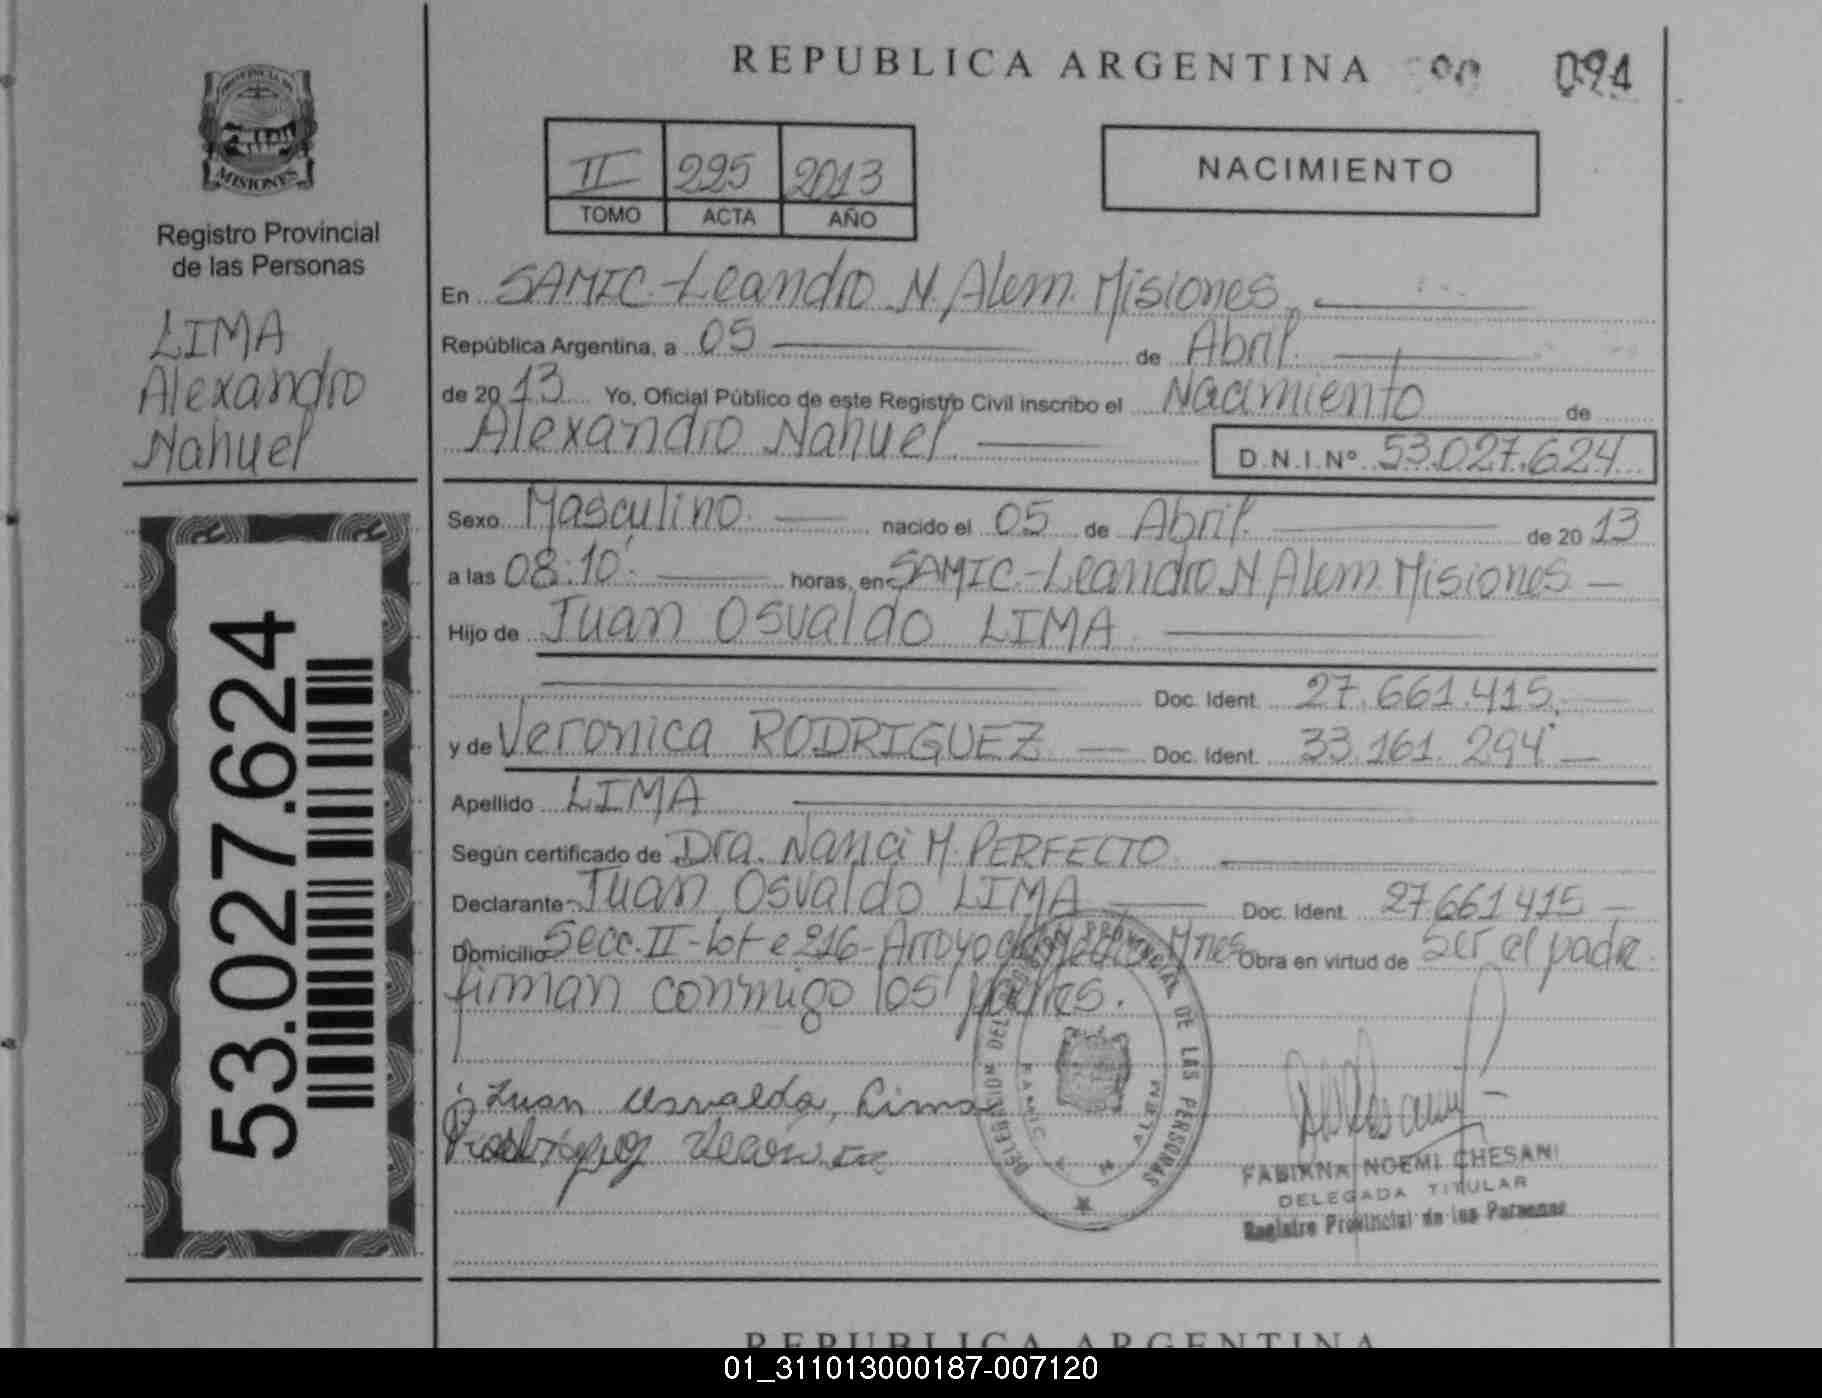 REPUBLICA ARGENTINA
094
PROVINCIA DE
MISIONES
Registro Provincial
de las Personas
LIMA
Alexandro
Nahuel
53.027.624
II 225 2013
TOMO ACTA AÑO
NACIMIENTO
En SAMIC-Leandro N. Alem. Misiones
República Argentina, a 05 de Abril.
de 2013 Yo, Oficial Público de este Registro Civil inscribo el Nacimiento de
Alexandro Nahuel D.N.I.Nº 53.027.624
Sexo Masculino nacido el 05 de Abril. de 2013
a las 08:10 horas, en SAMIC-Leandro N Alem. Misiones
Hijo de Juan Osvaldo LIMA
Doc. Ident. 27.661.415
y de Veronica RODRIGUEZ Doc. Ident. 33.161.294
Apellido LIMA
Según certificado de Dra. Nanci M. PERFECTO
Declarante Juan Osvaldo LIMA Doc. Ident. 27661415
Domicilio Secc. II-lote 216-Arroyo del Medio Mnes Obra en virtud de ser el padre.
firman conmigo los padres.
Juan Osvaldo, Lima
DELEGACION DEL REGISTRO PROVINCIAL DE LAS PERSONAS
N. ALEM
FABIANA NOEMI CHESANI
DELEGADA TITULAR
Registro Provincial de las Personas
REPUBLICA ARGENTINA
01_311013000187-007120